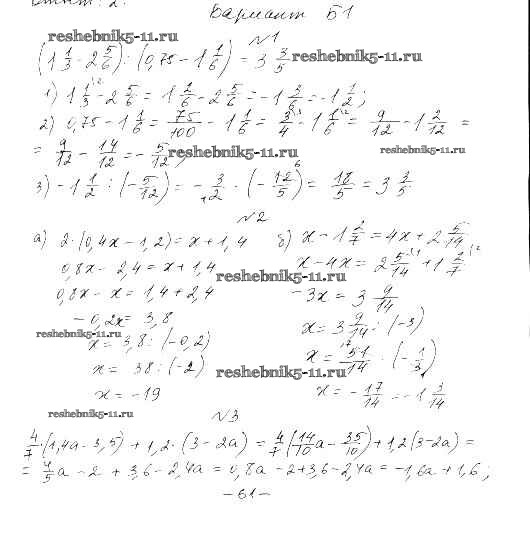 Ответ: 2.
Вариант Б1
№1
reshebnik5-11.ru
(1 1/3 - 2 5/6) : (0,75 - 1 1/6) = 3 3/5 reshebnik5-11.ru
1) 1 1/3 - 2 5/6 = 1 2/6 - 2 5/6 = -1 3/6 = -1 1/2;
2) 0,75 - 1 1/6 = 75/100 - 1 1/6 = 3/4 - 1 1/6 = 9/12 - 1 2/12 =
= 9/12 - 14/12 = -5/12; reshebnik5-11.ru reshebnik5-11.ru
3) -1 1/2 : (-5/12) = -3/2 · (-12/5) = 18/5 = 3 3/5
№2
а) 2·(0,4x - 1,2) = x + 1,4
0,8x - 2,4 = x + 1,4
0,8x - x = 1,4 + 2,4
-0,2x = 3,8
reshebnik5-11.ru
x = 3,8 : (-0,2)
x = 38 : (-2)
x = -19
б) x - 1 2/7 = 4x + 2 5/14
x - 4x = 2 5/14 + 1 2/7
reshebnik5-11.ru
-3x = 3 9/14
x = 3 9/14 : (-3)
x = 51/14 · (-1/3)
reshebnik5-11.ru
x = -17/14 = -1 3/14
reshebnik5-11.ru
№3
4/7·(1,4a - 3,5) + 1,2·(3 - 2a) = 4/7(14/10a - 35/10) + 1,2(3 - 2a) =
= 4/5a - 2 + 3,6 - 2,4a = 0,8a - 2 + 3,6 - 2,4a = -1,6a + 1,6;
-61-